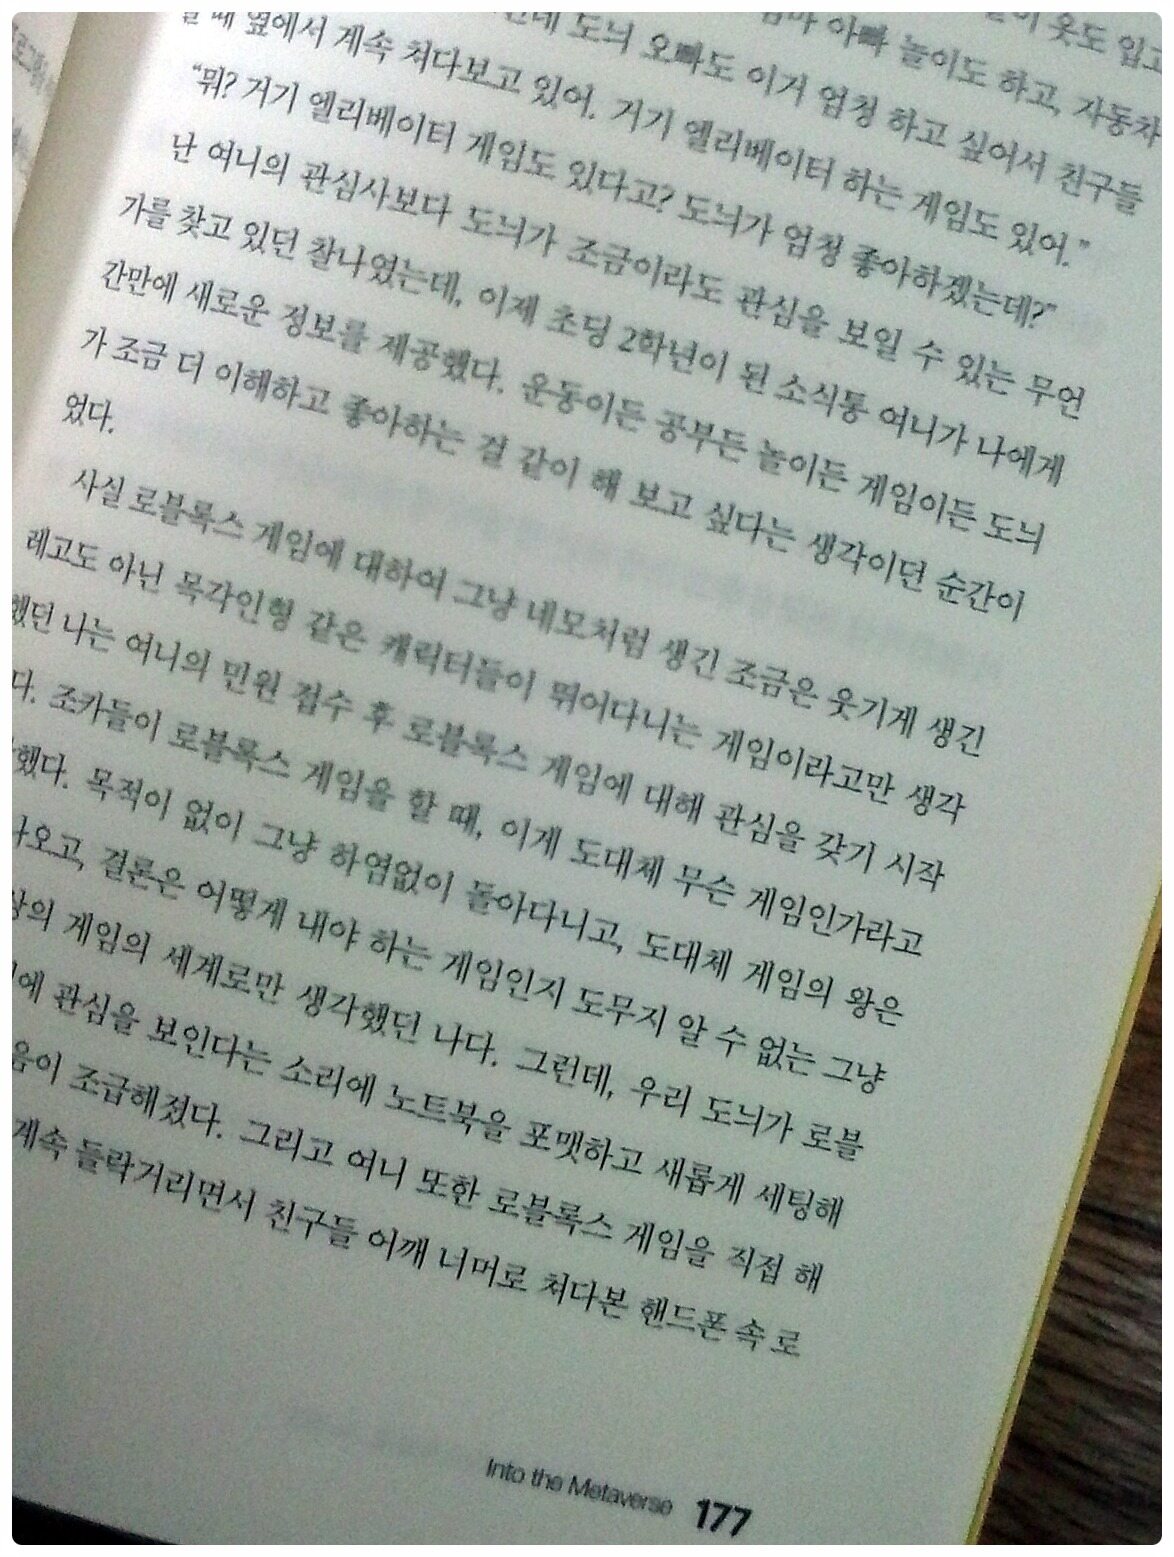 옷도 입고
아빠 놀이도 하고, 자동차
도늬 오빠도 이거 엄청 하고 싶어서 친구들
때 옆에서 계속 쳐다보고 있어. 거기 엘리베이터 하는 게임도 있어.”
“뭐? 거기 엘리베이터 게임도 있다고? 도늬가 엄청 좋아하겠는데?”
난 여니의 관심사보다 도늬가 조금이라도 관심을 보일 수 있는 무언
가를 찾고 있던 찰나였는데, 이제 초딩 2학년이 된 소식통 여니가 나에게
간만에 새로운 정보를 제공했다. 운동이든 공부든 놀이든 게임이든 도늬
가 조금 더 이해하고 좋아하는 걸 같이 해 보고 싶다는 생각이던 순간이
었다.
사실 로블록스 게임에 대하여 그냥 네모처럼 생긴 조금은 웃기게 생긴
레고도 아닌 목각인형 같은 캐릭터들이 뛰어다니는 게임이라고만 생각
했던 나는 여니의 민원 접수 후 로블록스 게임에 대해 관심을 갖기 시작
다. 조카들이 로블록스 게임을 할 때, 이게 도대체 무슨 게임인가라고
했다. 목적이 없이 그냥 하염없이 돌아다니고, 도대체 게임의 왕은
나오고, 결론은 어떻게 내야 하는 게임인지 도무지 알 수 없는 그냥
상의 게임의 세계로만 생각했던 나다. 그런데, 우리 도늬가 로블
에 관심을 보인다는 소리에 노트북을 포맷하고 새롭게 세팅해
음이 조급해졌다. 그리고 여니 또한 로블록스 게임을 직접 해
계속 들락거리면서 친구들 어깨 너머로 쳐다본 핸드폰 속 로
Into the Metaverse 177